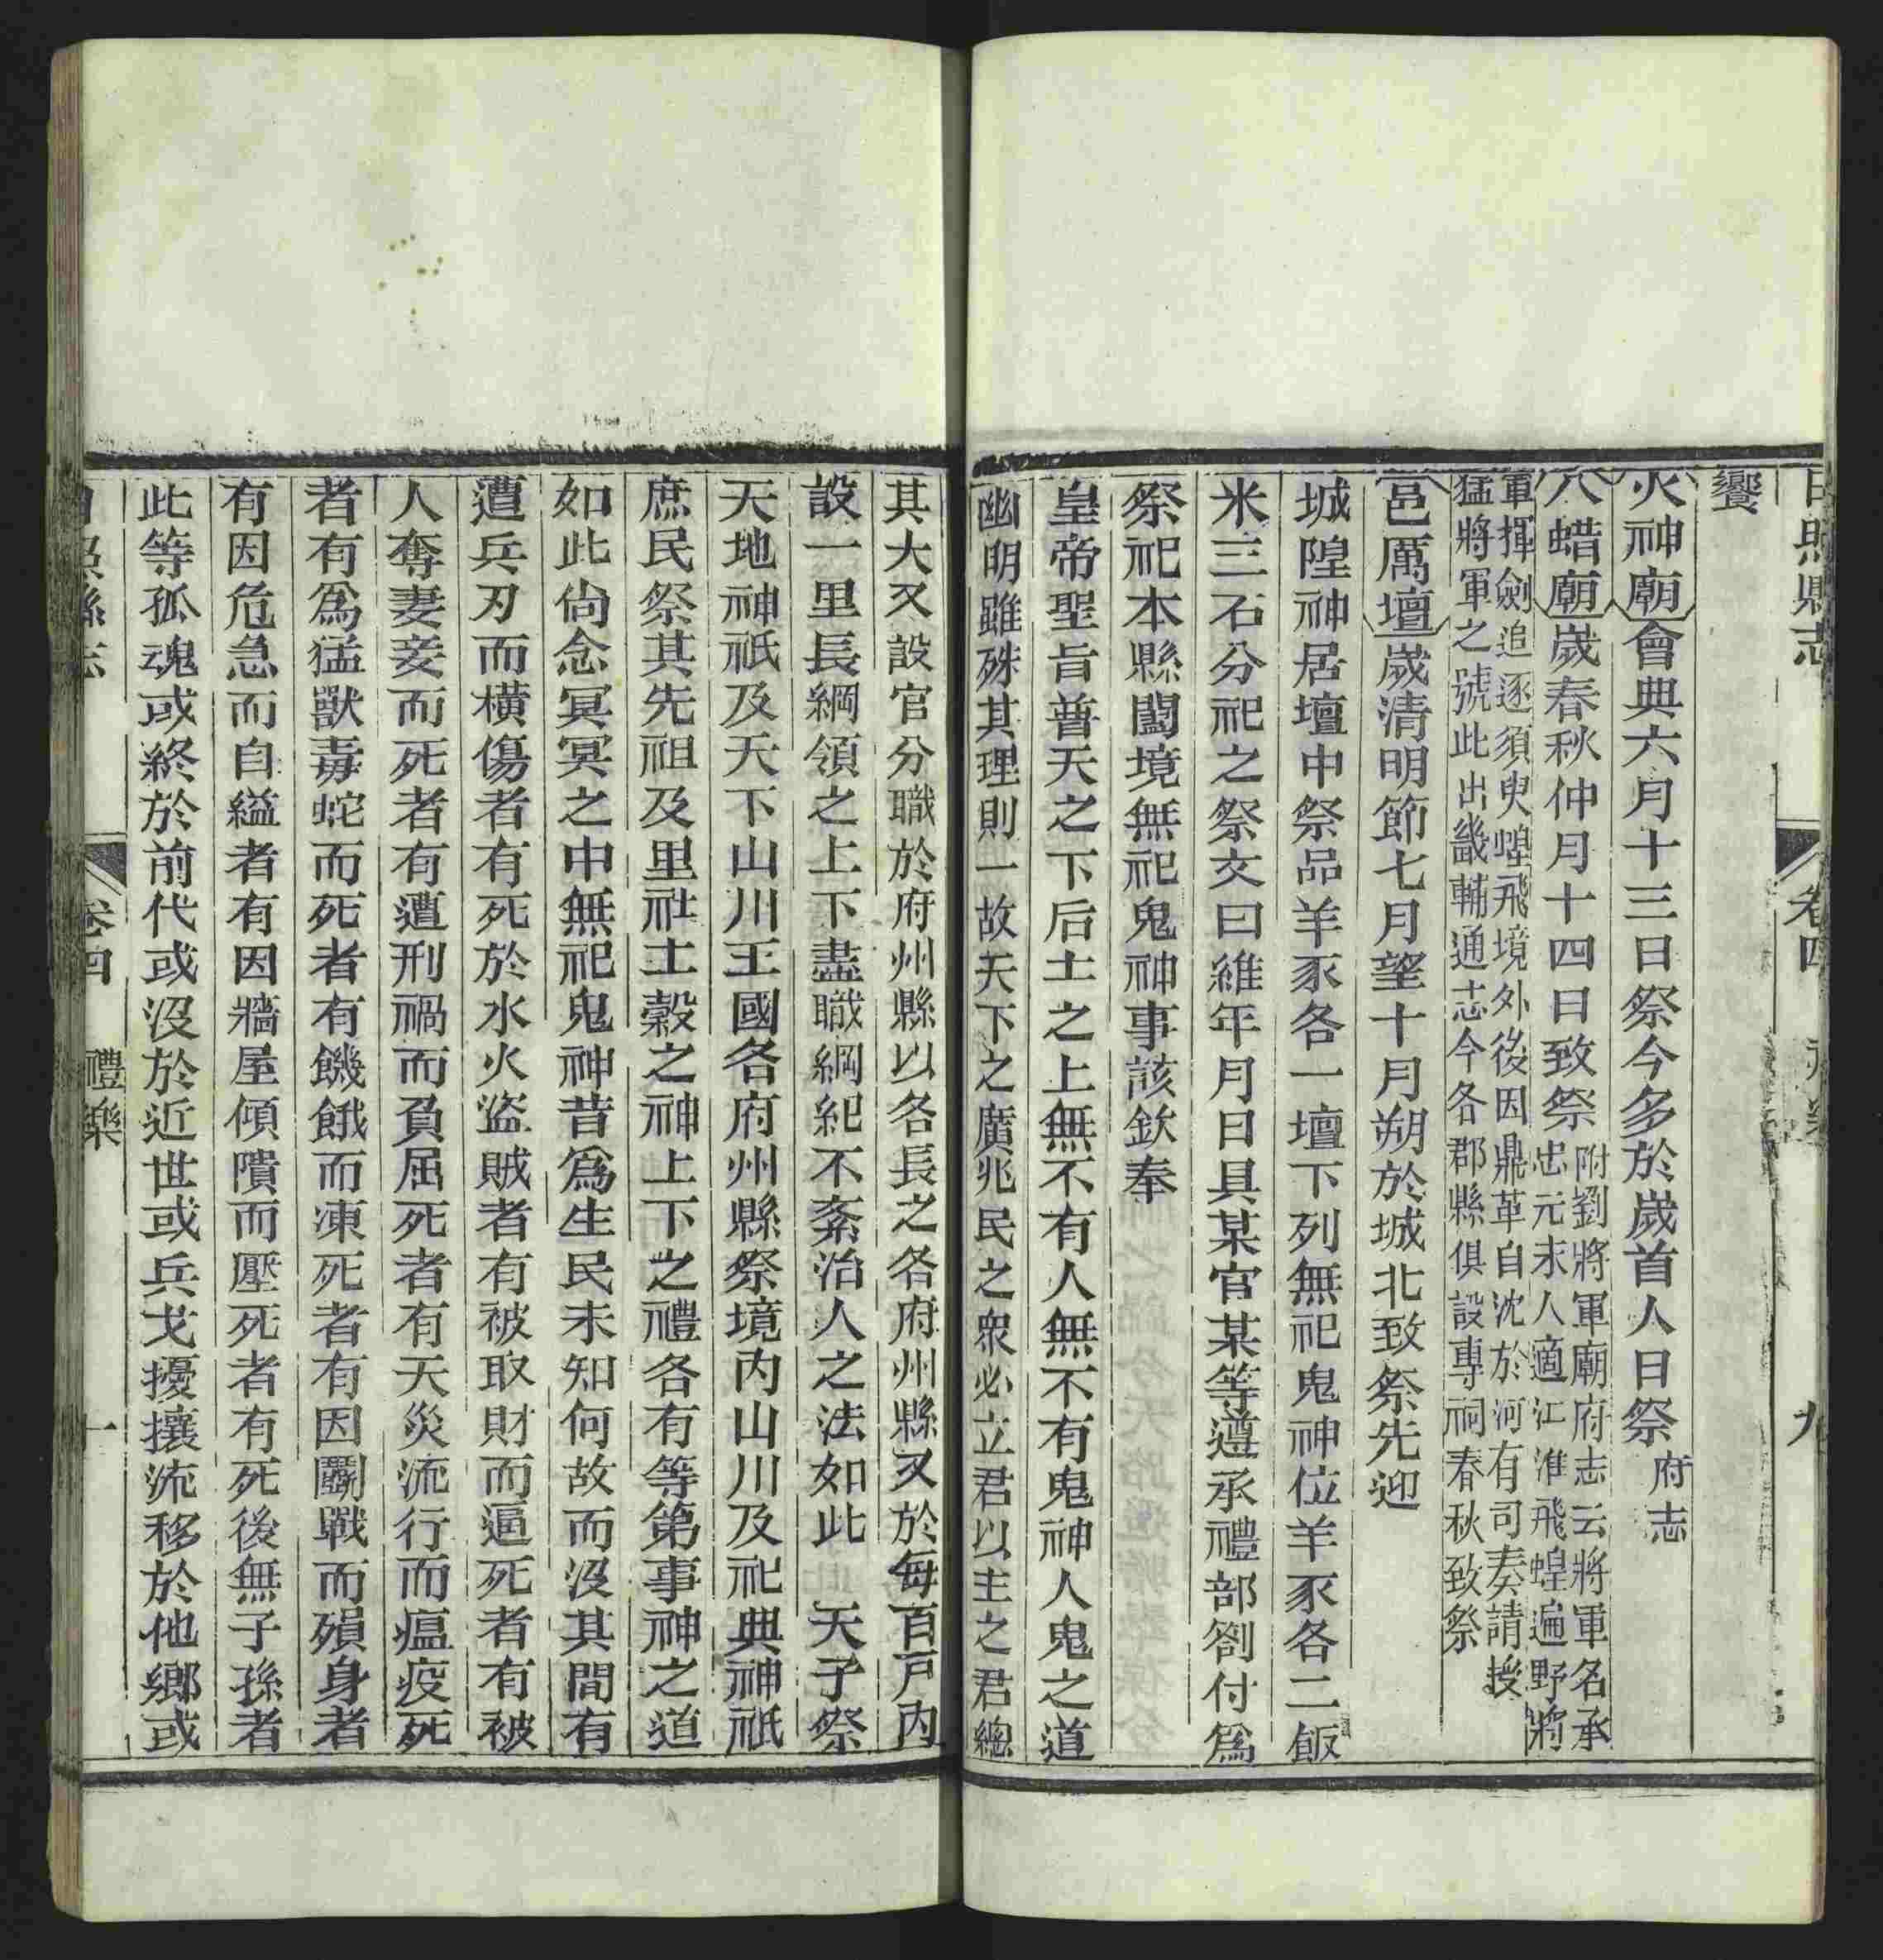 日照縣志
卷四
禮樂
九
饗
火神廟會典六月十三日祭今多於歲首人日祭府志
八蜡廟歲春秋仲月十四日致祭附劉將軍廟府志云將軍名承
忠元末人適江淮飛蝗遍野將
軍揮劍追逐須臾蝗飛境外後因鼎革自沈於河有司奏請授
猛將軍之號此出畿輔通志今各郡縣俱設專祠春秋致祭
邑厲壇歲清明節七月望十月朔於城北致祭先迎
城隍神居壇中祭品羊豕各一壇下列無祀鬼神位羊豕各二飯
米三石分祀之祭文曰維年月日具某官某等遵承禮部劄付爲
祭祀本縣闔境無祀鬼神事該欽奉
皇帝聖旨普天之下后土之上無不有人無不有鬼神人鬼之道
幽明雖殊其理則一故天下之廣兆民之衆必立君以主之君總
其大又設官分職於府州縣以各長之各府州縣又於每百戸內
設一里長綱領之上下盡職綱紀不紊治人之法如此天子祭
天地神祇及天下山川王國各府州縣祭境內山川及祀典神祇
庶民祭其先祖及里社土穀之神上下之禮各有等第事神之道
如此尙念冥冥之中無祀鬼神昔爲生民未知何故而沒其間有
遭兵刃而橫傷者有死於水火盜賊者有被取財而逼死者有被
人奪妻妾而死者有遭刑禍而負屈死者有天災流行而瘟疫死
者有爲猛獸毒蛇而死者有饑餓而凍死者有因鬭戰而殞身者
有因危急而自縊者有因牆屋傾隤而壓死者有死後無子孫者
此等孤魂或終於前代或沒於近世或兵戈擾攘流移於他鄉或
日照縣志
卷四
禮樂
十